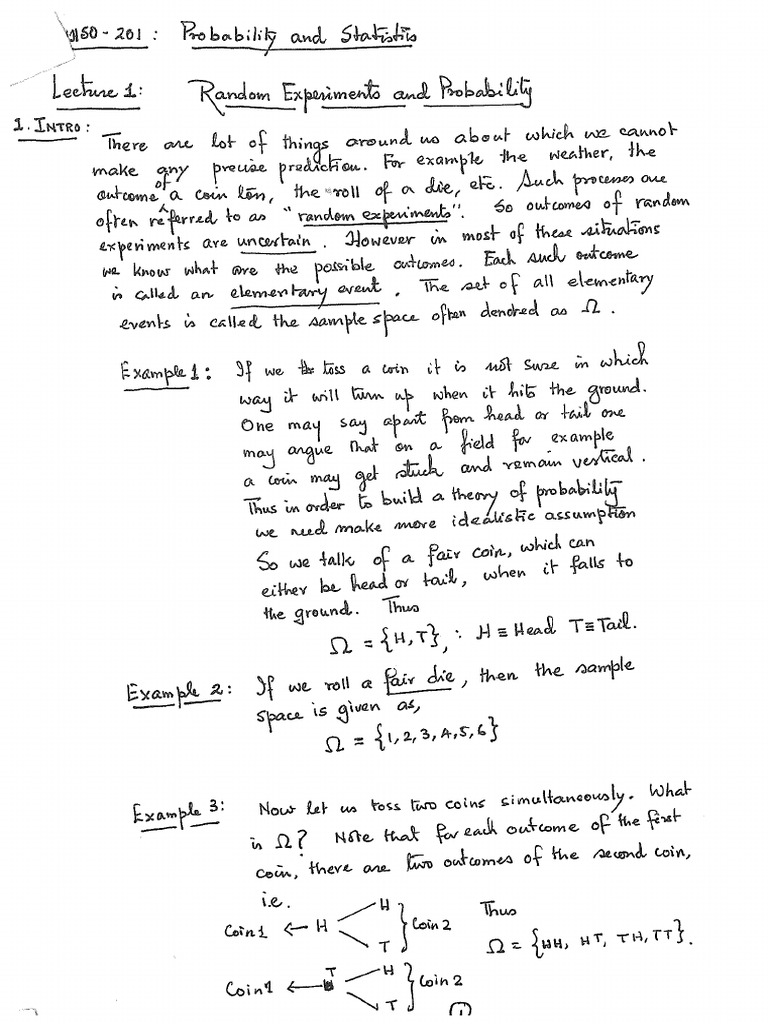 MSO-201: Probability and Statistics
Lecture 1: Random Experiments and Probability
1. INTRO: There are lot of things around us about which we cannot
make any precise prediction. For example the weather, the
outcome of a coin toss, the roll of a die, etc. Such processes are
often referred to as "random experiments". So outcomes of random
experiments are uncertain. However in most of these situations
we know what are the possible outcomes. Each such outcome
is called an elementary event. The set of all elementary
events is called the sample space often denoted as Ω.
Example 1: If we toss a coin it is not sure in which
way it will turn up when it hits the ground.
One may say apart from head or tail one
may argue that on a field for example
a coin may get stuck and remain vertical.
Thus in order to build a theory of probability
we need make more idealistic assumption
So we talk of a fair coin, which can
either be head or tail, when it falls to
the ground. Thus
Ω = {H,T}, : H ≡ Head T ≡ Tail.
Example 2: If we roll a fair die, then the sample
space is given as,
Ω = {1,2,3,4,5,6}
Example 3: Now let us toss two coins simultaneously. What
is Ω? Note that for each outcome of the first
coin, there are two outcomes of the second coin,
i.e.
Coin 1 ← H H T } Coin 2
Thus
Ω = {HH, HT, TH, TT}.
Coin 1 ← T H T } Coin 2
1